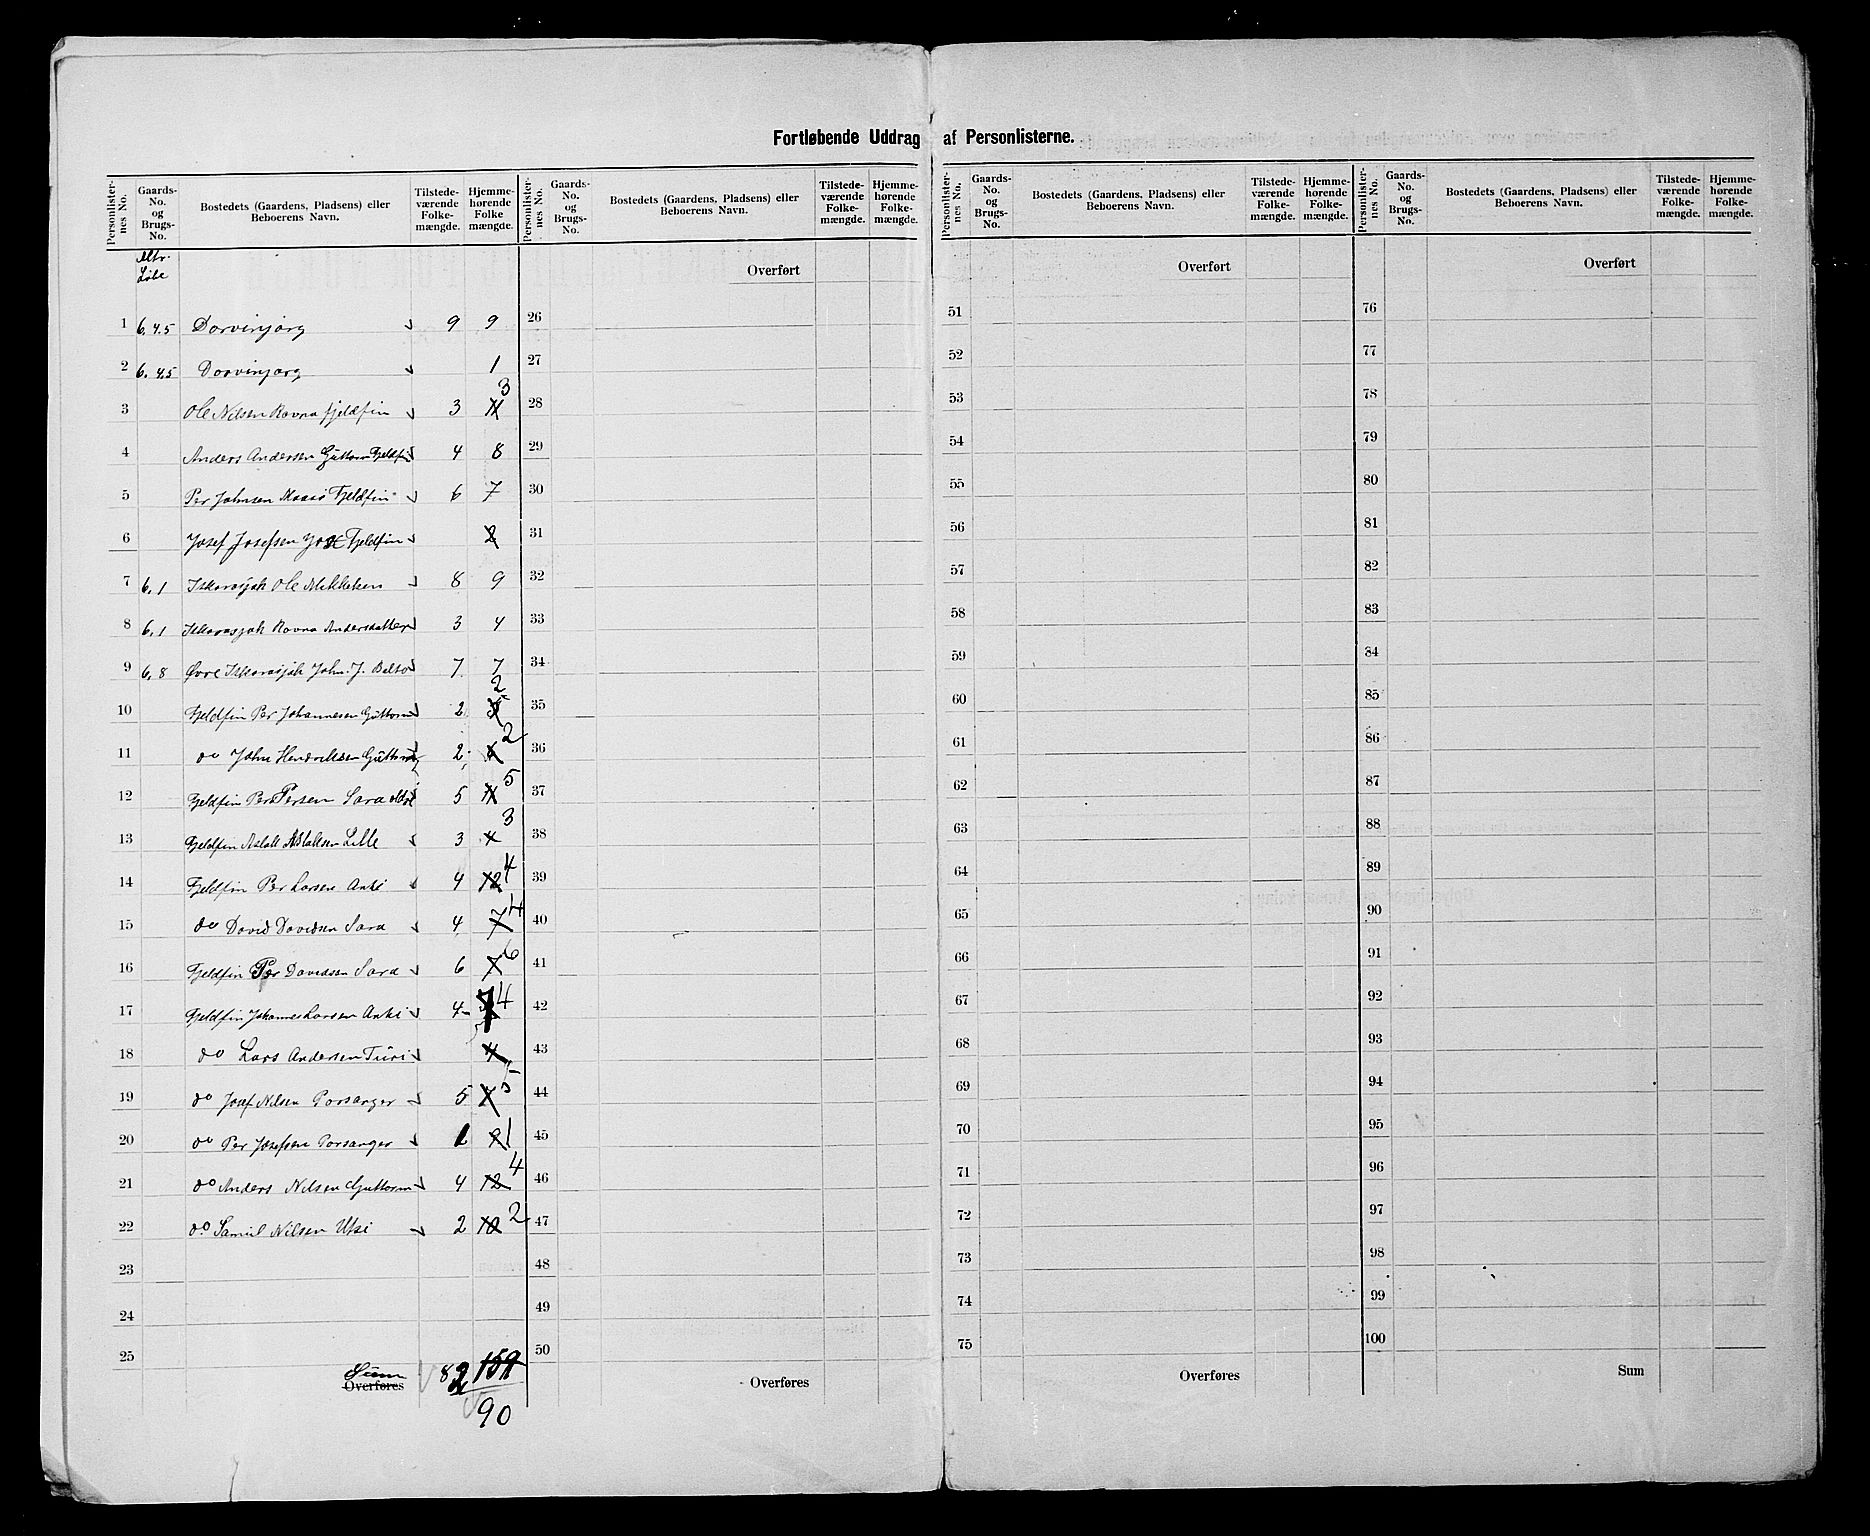 Fortløbende Uddrag af Personlisterne.
Personlister-nes No. Gaards-No. og Brugs-No. Bostedets (Gaardens, Pladsens) eller Beboerens Navn. Tilstede-værende Folke-mængde. Hjemme-hørende Folke mængde.
Mtr. Løbe
1 6.4.5 Dorvinjarg 9 9
2 6.4.5 Dorvinjarg 1
3 Ole Nilsen Ravna fjeldfin 3 11 3
4 Anders Andersen Guttorm Fjeldfin 4 8
5 Per Johnsen Maasø Fjeldfin 6 7
6 Josef Josefsen Fjeldfin 2
7 6.1 Iskarasjok Ole Mikkelsen 8 9
8 6.1 Iskarasjok Ravna Andersdatter 3 4
9 6.8 Øvre Iskarasjok John. J. Balto 7 7
10 Fjeldfin Per Johannesen Guttorm 2 2
11 do John Henriksen Guttorm 2 2
12 Fjeldfin Per Persen Sara 5 11 5
13 Fjeldfin Aslak Aslaksen Lille 3 3
14 Fjeldfin Per Larsen Anti 4 12 4
15 do David Davidsen Sara 4 7 4
16 Fjeldfin Per Davidsen Sara 6 7 6
17 Fjeldfin Johannes Larsen Anti 4 4
18 do Lars Andersen Turi 4
19 do Josef Nilsen Porsanger 5 7 5
20 do Per Josefsen Porsanger 1 1
21 do Anders Nilsen Guttorm 4 12 4
22 do Samuel Nilsen Utsi 2 10 2
23
24
25
Sum
Overføres 82 159
90
Personlister-nes No. Gaards-No. og Brugs-No. Bostedets (Gaardens, Pladsens) eller Beboerens Navn. Tilstede-værende Folke-mængde. Hjemme-hørende Folke-mængde.
Overført
26
27
28
29
30
31
32
33
34
35
36
37
38
39
40
41
42
43
44
45
46
47
48
49
50
Overføres
Personlister-nes No. Gaards-No. og Brugs-No. Bostedets (Gaardens, Pladsens) eller Beboerens Navn. Tilstede-værende Folke-mængde. Hjemme-hørende Folke-mængde.
Overført
51
52
53
54
55
56
57
58
59
60
61
62
63
64
65
66
67
68
69
70
71
72
73
74
75
Overføres
Personlister-nes No. Gaards-No. og Brugs-No. Bostedets (Gaardens, Pladsens) eller Beboerens Navn. Tilstede-værende Folke-mængde. Hjemme-hørende Folke-mængde.
Overført
76
77
78
79
80
81
82
83
84
85
86
87
88
89
90
91
92
93
94
95
96
97
98
99
100
Sum